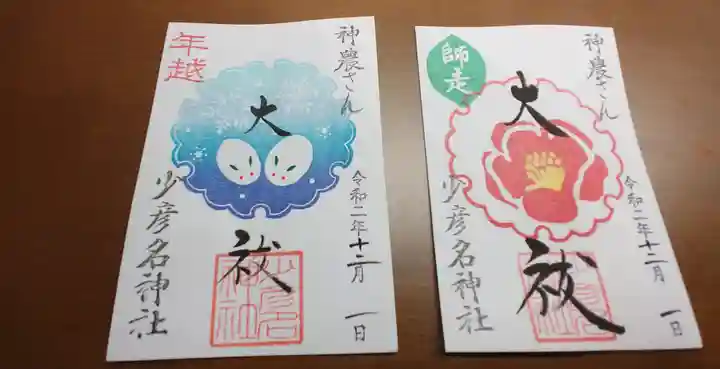 神農さん
年越
大祓
令和二年十二月 一日
少彦名神社
少彦名神社
神農さん
師走
大祓
令和二年十二月 一日
少彦名神社
少彦名神社